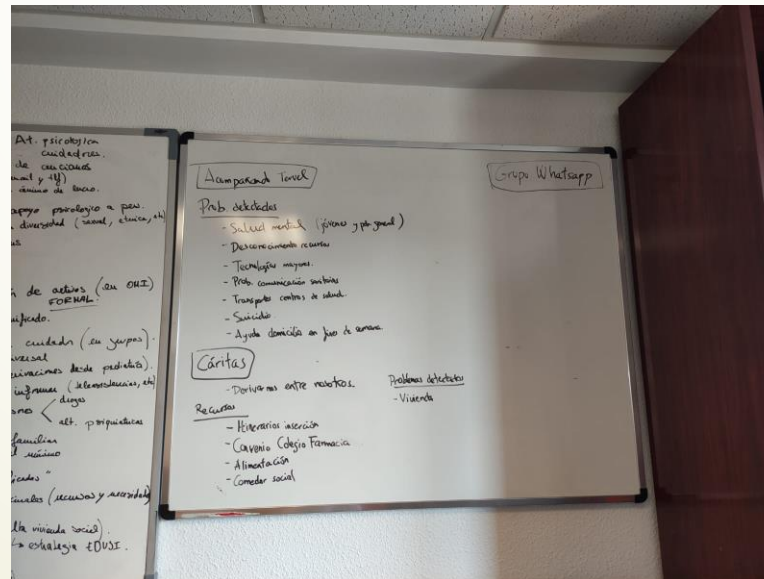 At. psicológica
cuidadores.
de ancianos
ánimo de lucro.
apoyo psicológico a
diversidad (sexual, etnica, etc)
de activos (en OMI)
FORMAL:
cuidado (en grupos).
desde pediatría).
drogas
alt. psiquiátricas
familiar
el mínimo
(recursos y necesidades
vivienda social).
estrategia EDUSI.
Acompañando Teruel
Grupo Whatsapp
Prob. detectados
- Salud mental (jóvenes y pob general)
- Desconocimiento recursos
- Tecnologías mayores.
- Prob. comunicación sanitarios
- Transportes centros de salud.
- Suicidio
- Ayuda domicilio en fines de semana
Cáritas
- Derivarnos entre nosotros.
Problemas detectados
- Vivienda
Recursos
- Itinerarios inserción
- Convenio Colegio Farmacia
- Alimentación
- Comedor social